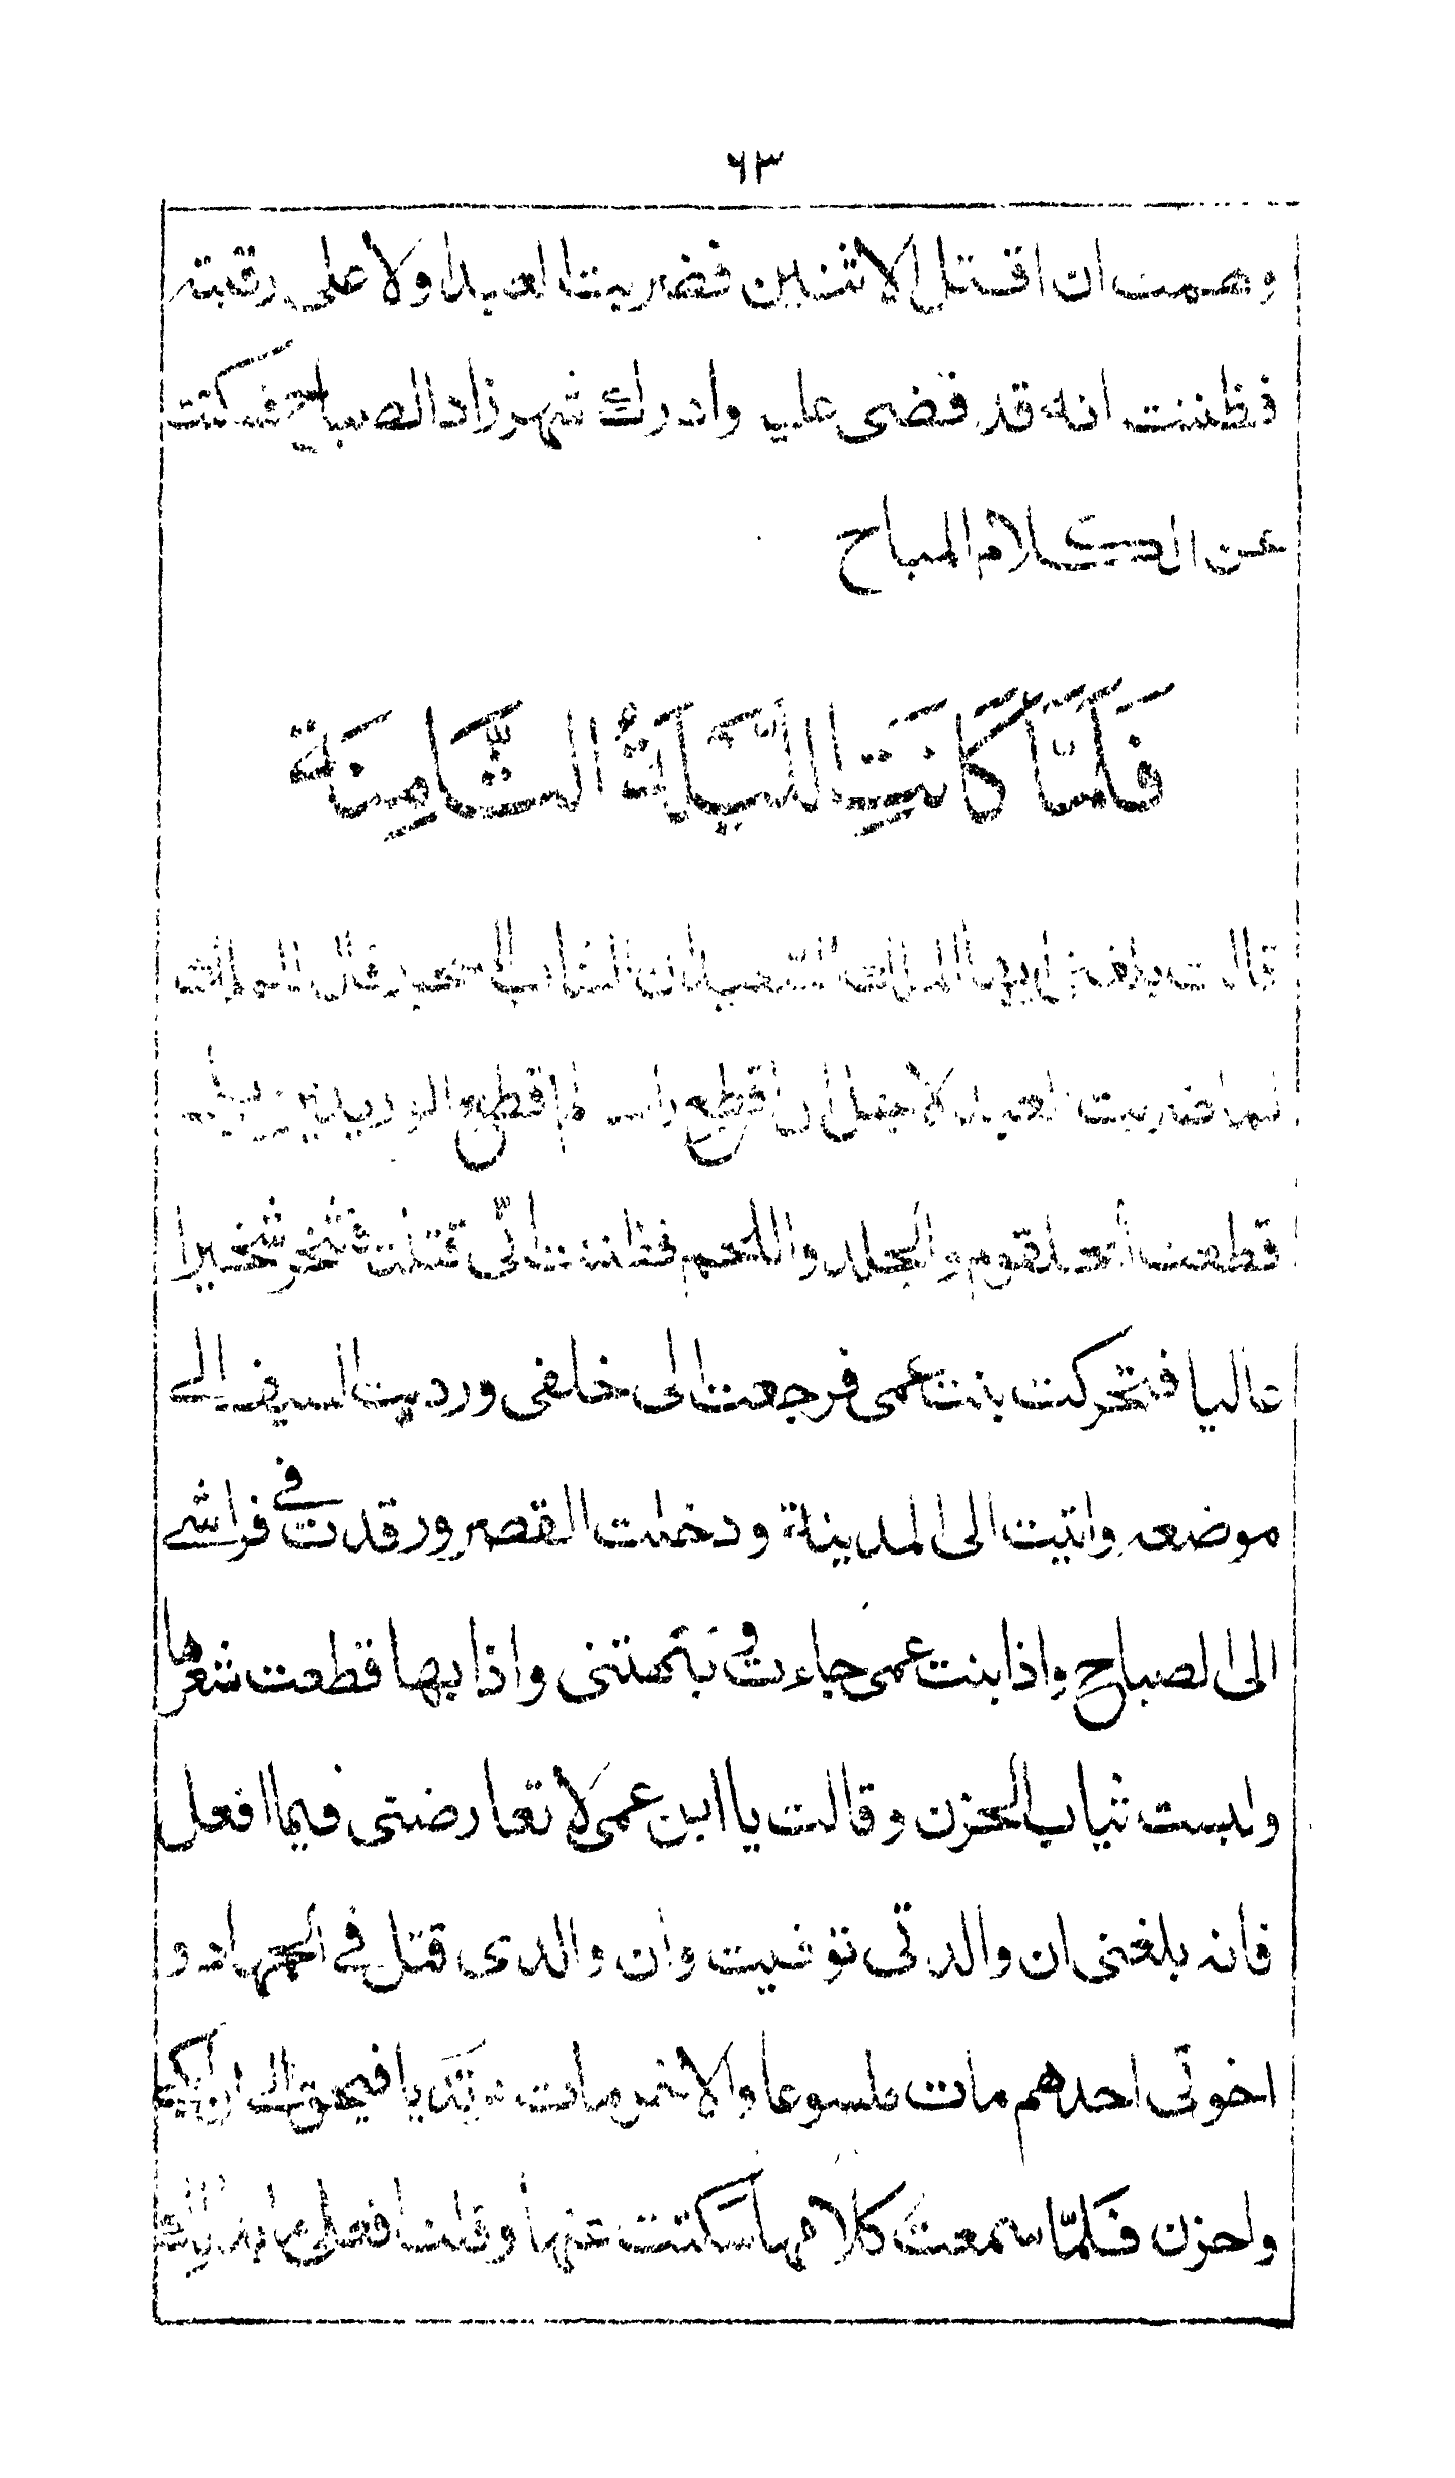 ٦٣
وهممت ان اقتل الاثنين فضربت العبد اولا على رقبته
فظننت انه قد قضى عليه وادرك شهرزاد الصباح فسكتت
عن الكلام المباح
فَلَمَّا كَانَتِ اللَّيْلَةُ الثَّامِنَة
قالت بلغني ايها الملك السعيد ان الشاب المسحور قال للملك
لما ضربت العبد لاجل ان اقطع راسه لم اقطع الوريدين بل
قطعت الحلقوم والجلد واللحم فظننت أنّي قتلته فشخر شخيرا
عاليا فتحركت بنت عمى فرجعت الى خلفى ورديت السيف الى
موضعه واتيت الى المدينة ودخلت القصر ورقدت في فراشي
الى الصباح واذا بنت عمى جاءت ونبهتنى واذا بها قطعت شعرها
ولبست ثياب الحزن وقالت يا ابن عمى لا تعارضنى فيما افعل
فانه بلغنى ان والدتى توفيت وان والدى قتل في الجهاد و
اخوتى احدهم مات ملسوعا والاخر مات فيحق الى ان ابكي
واحزن فلمّا سمعت كلامها سكتت عنها وقلت افعلى ما بدا لك